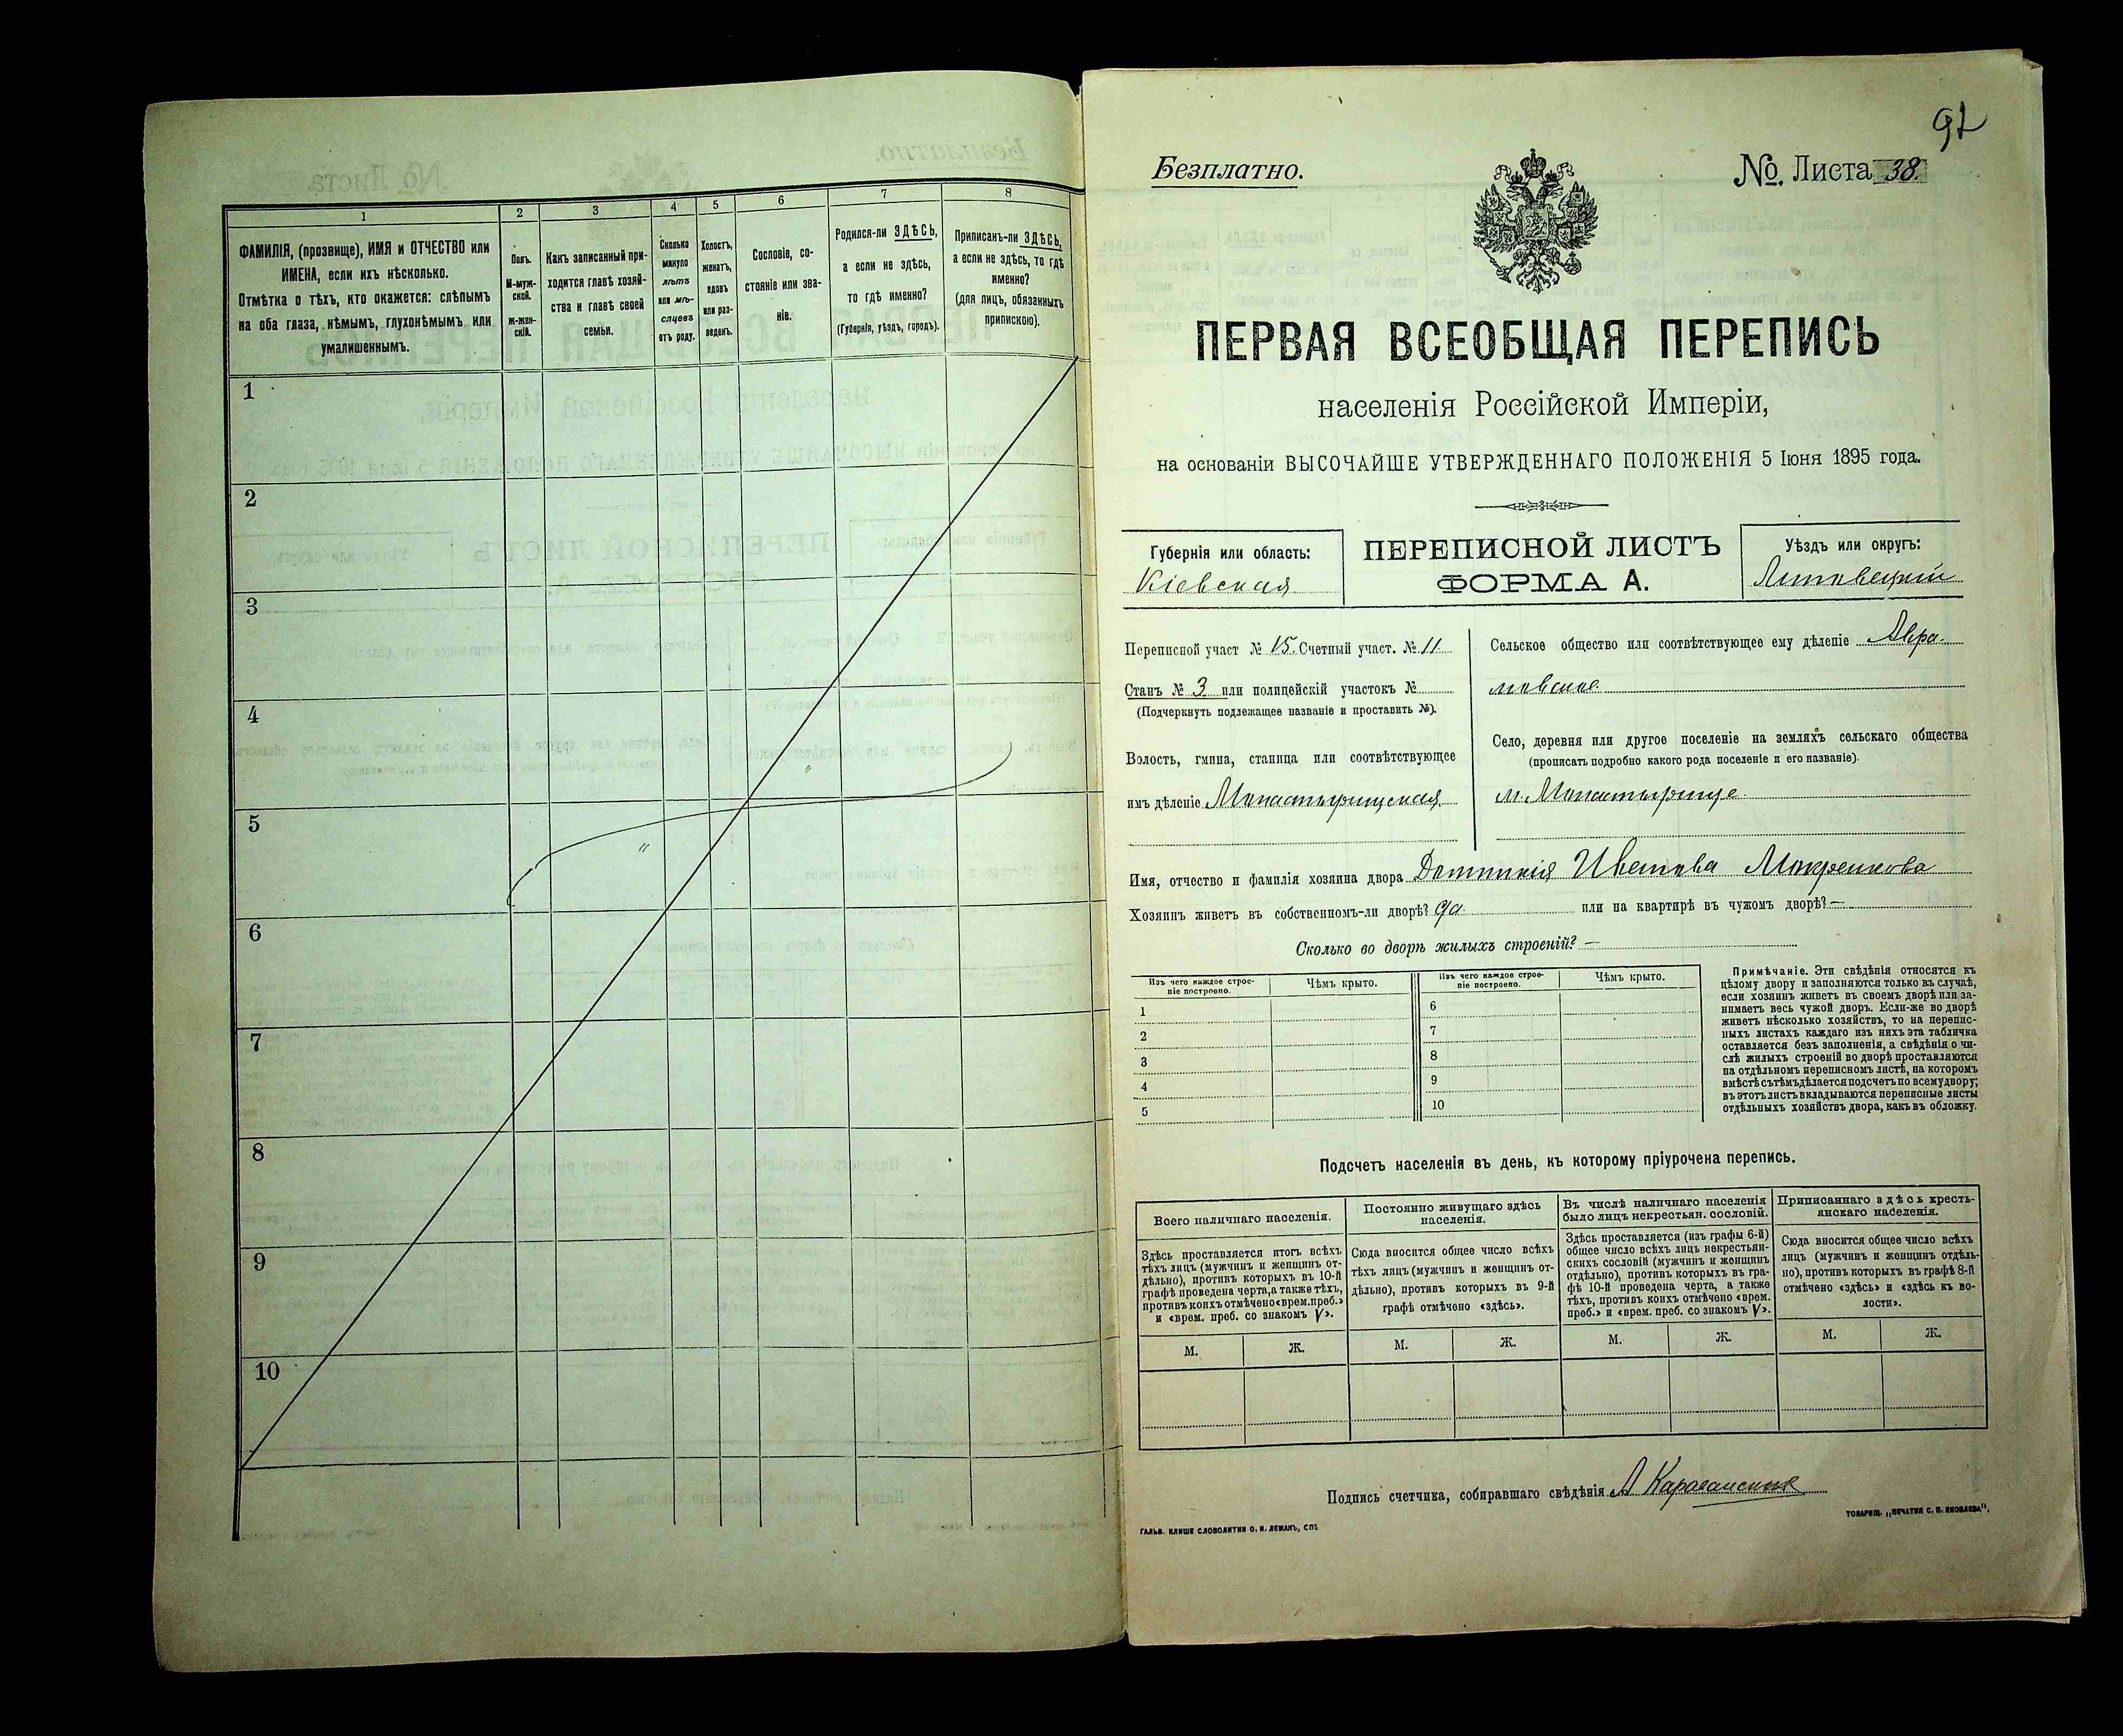 1
2
3
4
5
6
7
8
ФАМИЛІЯ, (прозвище), ИМЯ и ОТЧЕСТВО или
ИМЕНА, если ихъ нѣсколько.
Отмѣтка о тѣхъ, кто окажется: слѣпымъ
на оба глаза, нѣмымъ, глухонѣмымъ или
умалишеннымъ.
Полъ.
М-муж-
ской.
Ж-жен-
скій.
Какъ записанный при-
ходится главѣ хозяй-
ства и главѣ своей
семьи.
Сколько
минуло
лѣтъ
или мѣ-
сяцевъ
отъ роду.
Холостъ,
женатъ,
вдовъ
или раз-
веденъ.
Сословіе, со-
стояніе или зва-
ніе.
Родился-ли ЗДѢСЬ,
а если не здѣсь,
то гдѣ именно?
(Губернія, уѣздъ, городъ).
Приписанъ-ли ЗДѢСЬ,
а если не здѣсь, то гдѣ
именно?
(для лицъ, обязанныхъ
припискою).
1
2
3
4
5
6
7
8
9
10
Безплатно.
№ Листа 38.
ПЕРВАЯ ВСЕОБЩАЯ ПЕРЕПИСЬ
населенія Россійской Имперіи,
на основаніи ВЫСОЧАЙШЕ УТВЕРЖДЕННАГО ПОЛОЖЕНІЯ 5 Іюня 1895 года.
Губернія или область:
Кіевская
ПЕРЕПИСНОЙ ЛИСТЪ
ФОРМА А.
Уѣздъ или округъ:
Липовецкій
Переписной участ № 15. Счетный участ. № 11
Станъ № 3 или полицейскій участокъ №
(Подчеркнуть подлежащее названіе и проставить №).
Волость, гмина, станица или соотвѣтствующее
имъ дѣленіе Монастырищская
Сельское общество или соотвѣтствующее ему дѣленіе Авра-
мовское.
Село, деревня или другое поселеніе на земляхъ сельскаго общества
(прописать подробно какого рода поселеніе и его названіе).
м. Монастырище.
Имя, отчество и фамилія хозяина двора Домникія Иванова
Хозяинъ живетъ въ собственномъ-ли дворѣ? да. или на квартирѣ въ чужомъ дворѣ? —
Сколько во дворѣ жилыхъ строеній? —
Изъ чего каждое строе-
ніе построено.
Чѣмъ крыто.
Изъ чего каждое строе-
ніе построено.
Чѣмъ крыто.
1
2
3
4
5
6
7
8
9
10
Примѣчаніе. Эти свѣдѣнія относятся къ
цѣлому двору и заполняются только въ случаѣ,
если хозяинъ живетъ въ своемъ дворѣ или за-
нимаетъ весь чужой дворъ. Если-же во дворѣ
живетъ нѣсколько хозяйствъ, то на перепис-
ныхъ листахъ каждаго изъ нихъ эта табличка
оставляется безъ заполненія, а свѣдѣнія о чи-
слѣ жилыхъ строеній во дворѣ проставляются
на отдѣльномъ переписномъ листѣ, на которомъ
вмѣстѣ съ тѣмъ дѣлается подсчетъ по всему двору;
въ этотъ листъ вкладываются переписные листы
отдѣльныхъ хозяйствъ двора, какъ въ обложку.
Подсчетъ населенія въ день, къ которому пріурочена перепись.
Всего наличнаго населенія.
Постоянно живущаго здѣсь
населенія.
Въ числѣ наличнаго населенія
было лицъ некрестьян. сословій.
Приписаннаго здѣсь кресть-
янскаго населенія.
Здѣсь проставляется итогъ всѣхъ
тѣхъ лицъ (мужчинъ и женщинъ от-
дѣльно), противъ которыхъ въ 10-й
графѣ проведена черта, а также тѣхъ,
противъ коихъ отмѣчено «врем. преб.»
и «врем. преб. со знакомъ V».
Сюда вносится общее число всѣхъ
тѣхъ лицъ (мужчинъ и женщинъ от-
дѣльно), противъ которыхъ въ 9-й
графѣ отмѣчено «здѣсь».
Здѣсь проставляется (изъ графы 6-й)
общее число всѣхъ лицъ некрестьян-
скихъ сословій (мужчинъ и женщинъ
отдѣльно), противъ которыхъ въ гра-
фѣ 10-й проведена черта, а также
тѣхъ, противъ коихъ отмѣчено «врем.
преб.» и «врем. преб. со знакомъ V».
Сюда вносится общее число всѣхъ
лицъ (мужчинъ и женщинъ отдѣль-
но), противъ которыхъ въ графѣ 8-й
отмѣчено «здѣсь» и «здѣсь къ во-
лости».
М.
Ж.
М.
Ж.
М.
Ж.
М.
Ж.
Подпись счетчика, собиравшаго свѣдѣнія
ГАЛЬВ. КЛИШЕ СЛОВОЛИТНИ О. И. ЛЕМАНЪ, СПБ.
ТОВАРИЩ. „ПЕЧАТНЯ С. П. ЯКОВЛЕВА".